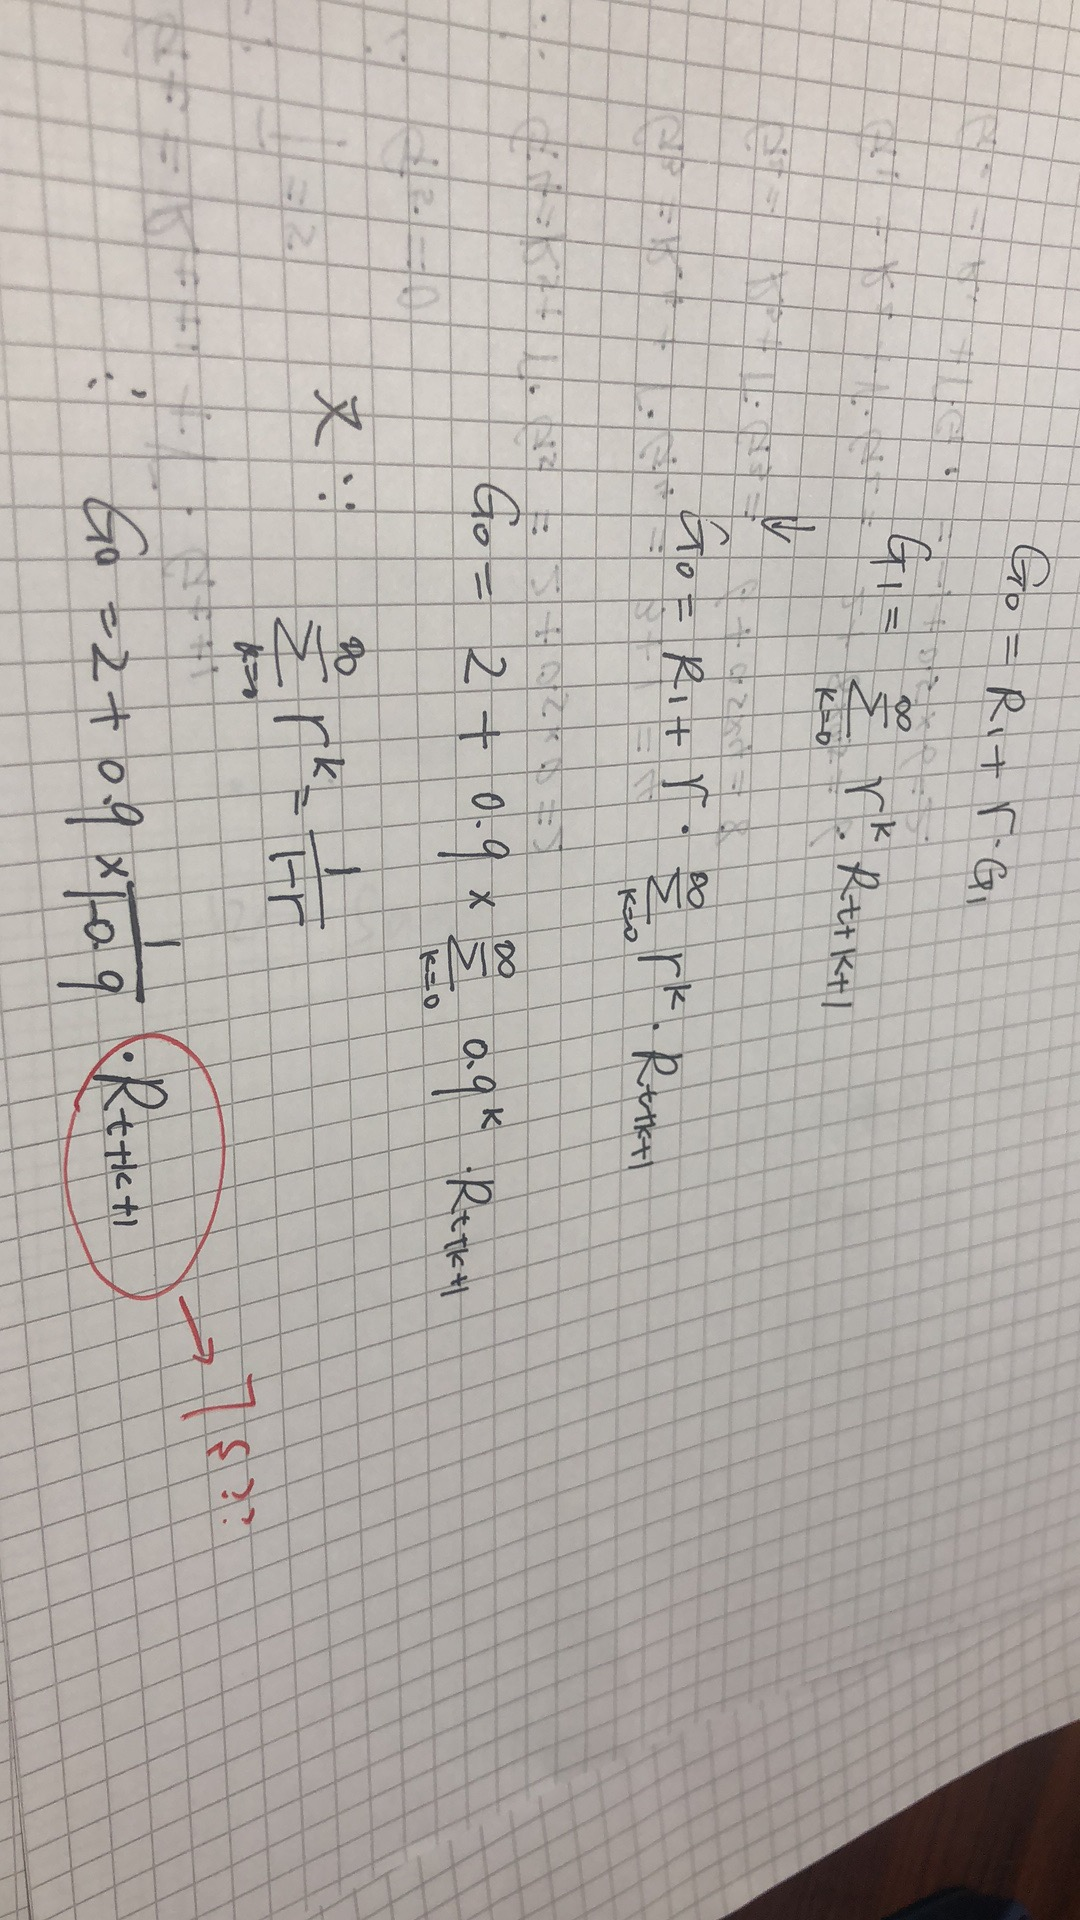 G₀ = R₁ + r·G₁
G₁ = ∑_{k=0}^{∞} r^k · R_{t+k+1}
↓
G₀ = R₁ + r · ∑_{k=0}^{∞} r^k · R_{t+k+1}
G₀ = 2 + 0.9 × ∑_{k=0}^{∞} 0.9^k · R_{t+k+1}
又∵
∑_{k=0}^{∞} r^k = 1/(1-r)
∴ G₀ = 2 + 0.9 × 1/(1-0.9) · R_{t+k+1}
→